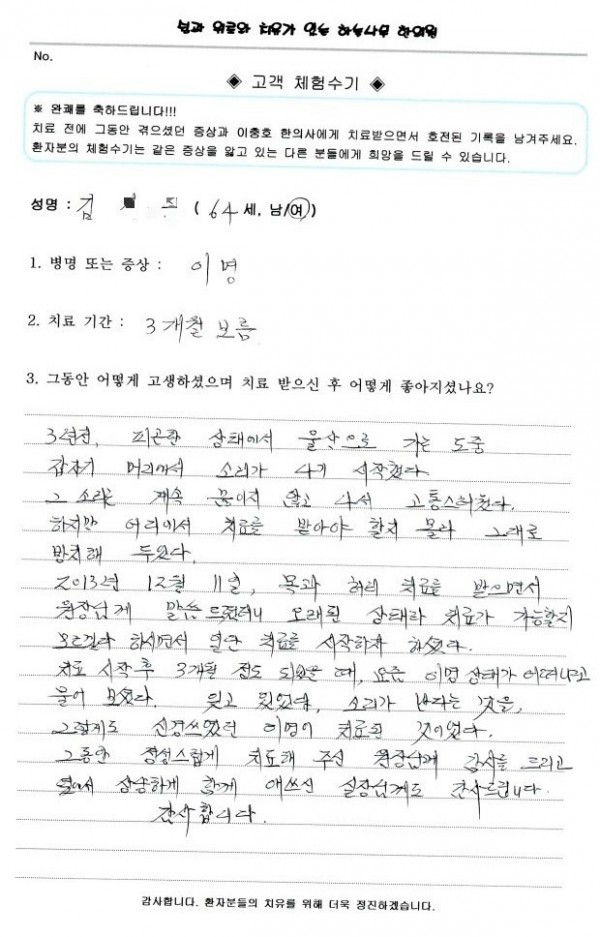 No.
◈ 고객 체험수기 ◈
※ 완쾌를 축하드립니다!!!
치료 전에 그동안 겪으셨던 증상과 이충호 한의사에게 치료받으면서 호전된 기록을 남겨주세요.
환자분의 체험수기는 같은 증상을 앓고 있는 다른 분들에게 희망을 드릴 수 있습니다.
성명 : 김 ( 64 세, 남/여)
1. 병명 또는 증상 : 이명
2. 치료 기간 : 3개월 보름
3. 그동안 어떻게 고생하셨으며 치료 받으신 후 어떻게 좋아지셨나요?
3년전, 피곤한 상태에서 울산으로 가는 도중
갑자기 머리에서 소리가 나기 시작했다.
그 소리는 계속 끊이지 않고 나서 고통스러웠다.
하지만 어디에서 치료를 받아야 할지 몰라 그대로
방치해 두었다.
2013년 12월 11일, 목과 허리 치료를 받으면서
원장님께 말씀 드렸더니 오래된 상태라 치료가 가능할지
모르겠다 하시면서 일단 치료를 시작하자 하셨다.
치료 시작 후 3개월 정도 되었을 때, 요즘 이명 상태가 어떠냐고
물어 보셨다. 잊고 있었다, 소리가 났다는 것을,
그렇게도 신경쓰였던 이명이 치료된 것이었다.
그동안 정성스럽게 치료해 주신 원장님께 감사를 드리고
옆에서 상냥하게 함께 애쓰신 실장님께도 감사드립니다.
감사합니다.
감사합니다. 환자분들의 치유를 위해 더욱 정진하겠습니다.